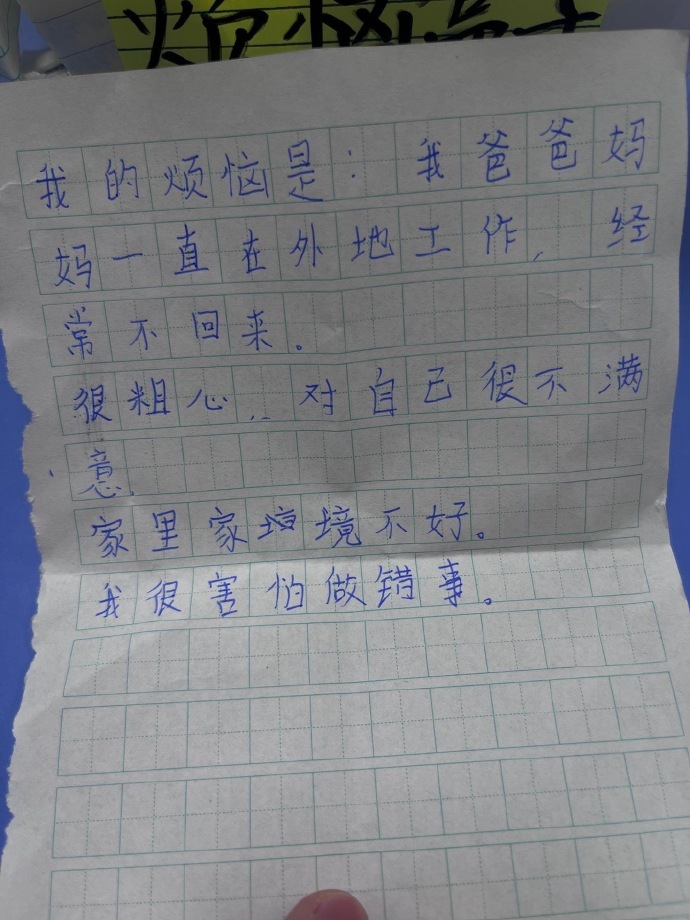 我的烦恼是：我爸爸妈
妈一直在外地工作，经
常不回来。
很粗心，，对自己很不满
意．
家里家境不好。
我很害怕做错事。